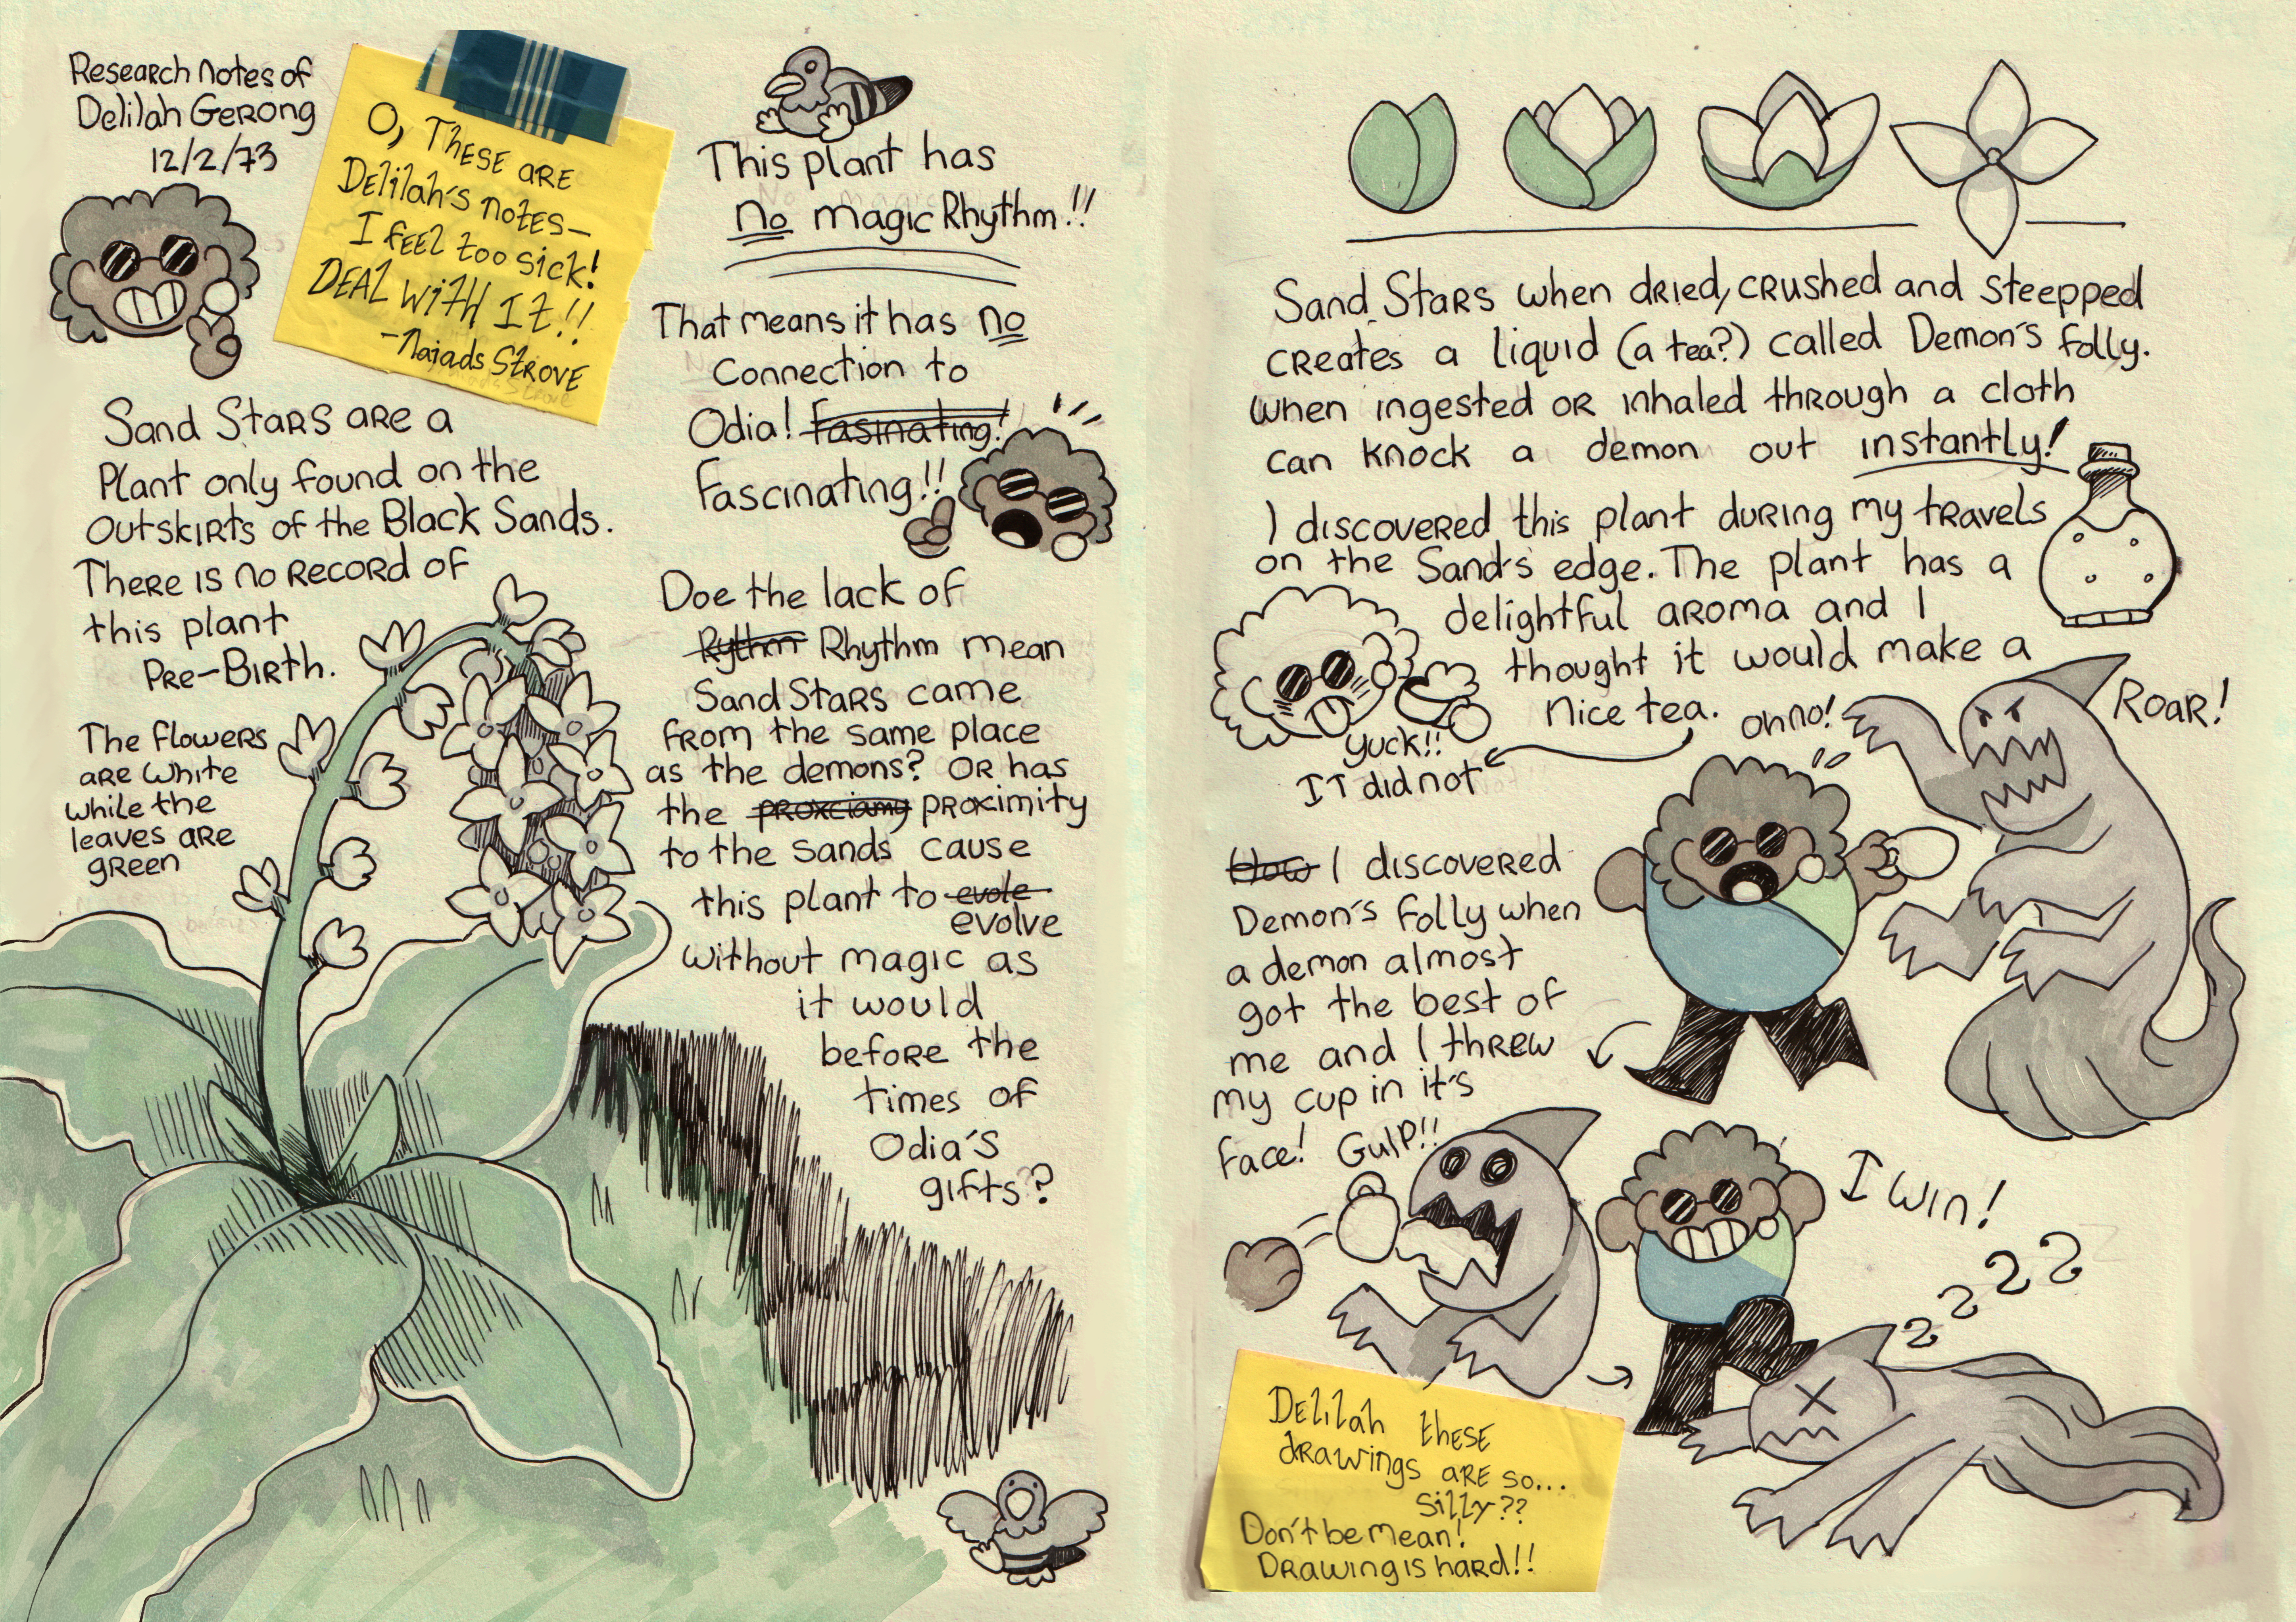 Research notes of
Delilah Gerong
12/2/73
O, These are
Delilah's notes—
I feel too sick!
Deal with it!!
-Naiads Strove
Sand Stars are a
Plant only found on the
outskirts of the Black Sands.
There is no record of
this plant
Pre-Birth.
The flowers
are white
while the
leaves are
green
This plant has
no magic Rhythm!!
That means it has no
Connection to
Odia! Fasinating!
Fascinating!!
Doe the lack of
Rythm Rhythm mean
Sand Stars came
from the same place
as the demons? Or has
the proxciamy proximity
to the Sands cause
this plant to evole
evolve
without magic as
it would
before the
times of
Odia's
gifts?
Sand Stars when dried, crushed and steepped
creates a liquid (a tea?) called Demon's folly.
When ingested or inhaled through a cloth
can knock a demon out instantly!
I discovered this plant during my travels
on the Sand's edge. The plant has a
delightful aroma and I
thought it would make a
nice tea.
Yuck!!
IT did not
oh no!
Roar!
How I discovered
Demon's folly when
a demon almost
got the best of
me and I threw
my cup in it's
face!
Gulp!!
I win!
z z z z
Delilah these
drawings are so...
silly??
Don't be mean!
Drawing is hard!!